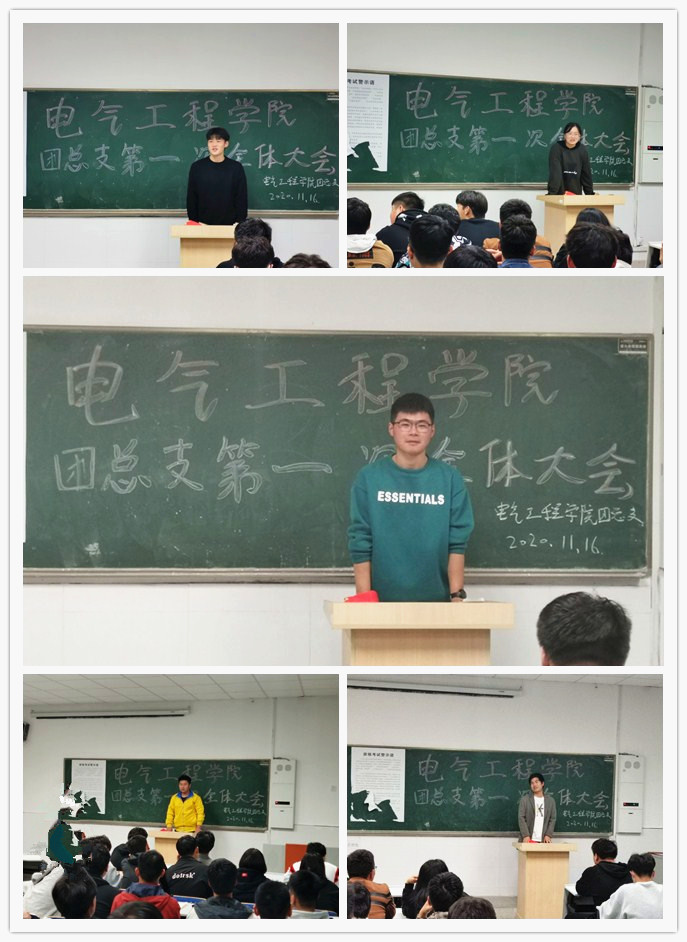 电气工程学院
团总支第一次全体大会
电气工程学院团总支
2020.11.16.
电气工程学院
团总支第一次全体大会
工程学院团总支
2020.11.16
电气工程学院
团总支第一次全体大会
电气工程学院团总支
2020.11.16.
ESSENTIALS
电气工程学院
团总支第一 全体大会
电气工程学院团总支
2020.11.16
电气工程学院
团总支第一 全体大会
电气工程学院团总支
2020.11.16